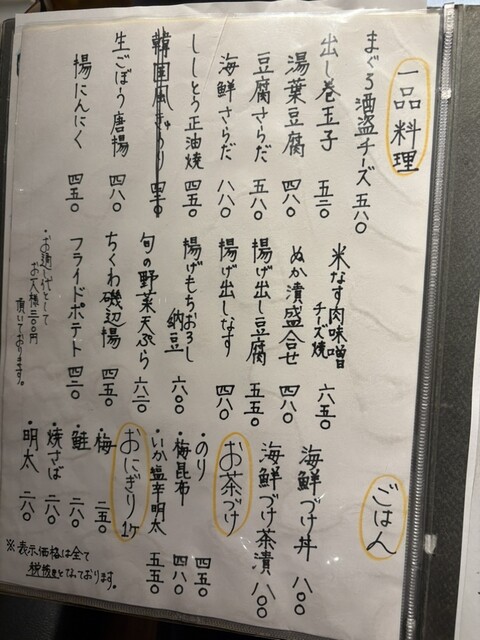 一品料理
まぐろ酒盗チーズ 五八〇
出し巻玉子 五三〇
湯葉豆腐 四八〇
豆腐さらだ 五八〇
海鮮さらだ 八八〇
ししとう正油焼 四五〇
韓国風きゅうり 四三〇
生ごぼう唐揚 四八〇
揚にんにく 四五〇
米なす肉味噌
チーズ焼 六五〇
ぬか漬盛合せ 四八〇
揚げ出し豆腐 五五〇
揚げ出しなす 四八〇
揚げもちおろし
納豆 六〇〇
旬の野菜天ぷら 六八〇
ちくわ磯辺揚 四五〇
フライドポテト 四三〇
・お通し代として
お一人様三〇〇円
頂いております。
ごはん
海鮮づけ丼 八〇〇
海鮮づけ茶漬 八〇〇
お茶づけ
・のり 四五〇
・梅昆布 四八〇
・いか塩辛明太 五五〇
おにぎり1ケ
・梅 二五〇
・鮭 二八〇
・焼さば 二八〇
・明太 二八〇
※表示価格は全て
税抜きとなっております。